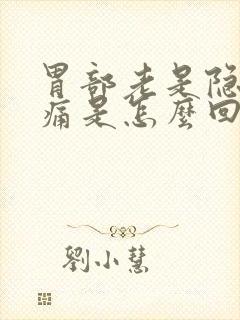 胃部老是隐
痛是怎麽回
劉小慧